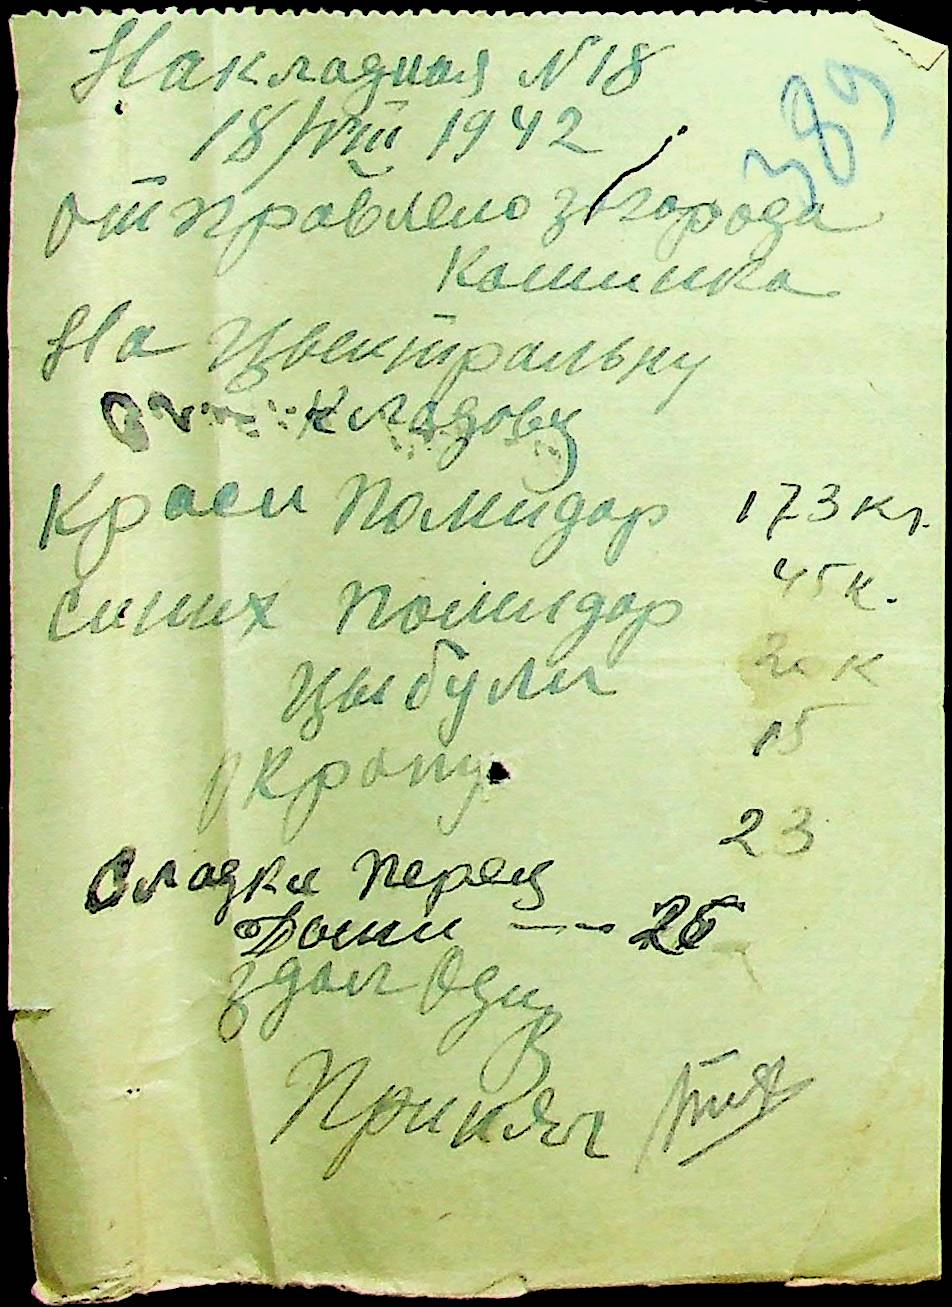 Накладная N 18
389
18/VIII 1942
отправлено з города
На Цвентральну
Кладову
Красн помидор 173 кг.
синих помидор 45 к.
Цыбули 20 к
укропу 15
23
Сладки перец
Дыни — 25
здал
Принял